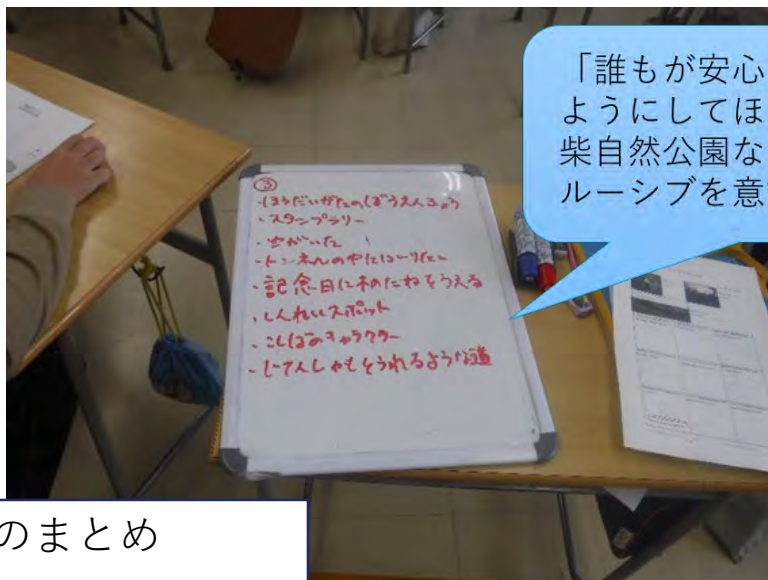 「誰もが安心
ようにしてほ
柴自然公園な
ルーシブを意
③
・ほうだいがたのぼうえんきょう
・スタンプラリー
・トンネルの中にはいりたい
・記念日に木のたねをうえる
・しんれいスポット
・こしばのキャラクター
・じてんしゃもとうれるような道
のまとめ